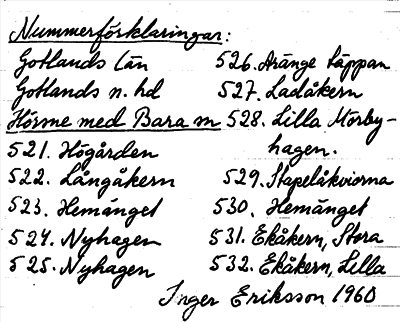 Nummerförklaringar:
Gotlands län
Gotlands n. hd
Hörsne med Bara sn
521. Högården
522. Långåkern
523. Hemänget
524. Nyhagen
525. Nyhagen
526. Aränge Täppan
527. Ladåkern
528. Lilla Norby-
hagen.
529. Stapelåkviorna
530. Hemänget
531. Ekåkern, Stora
532. Ekåkern, Lilla
Inger Eriksson 1960